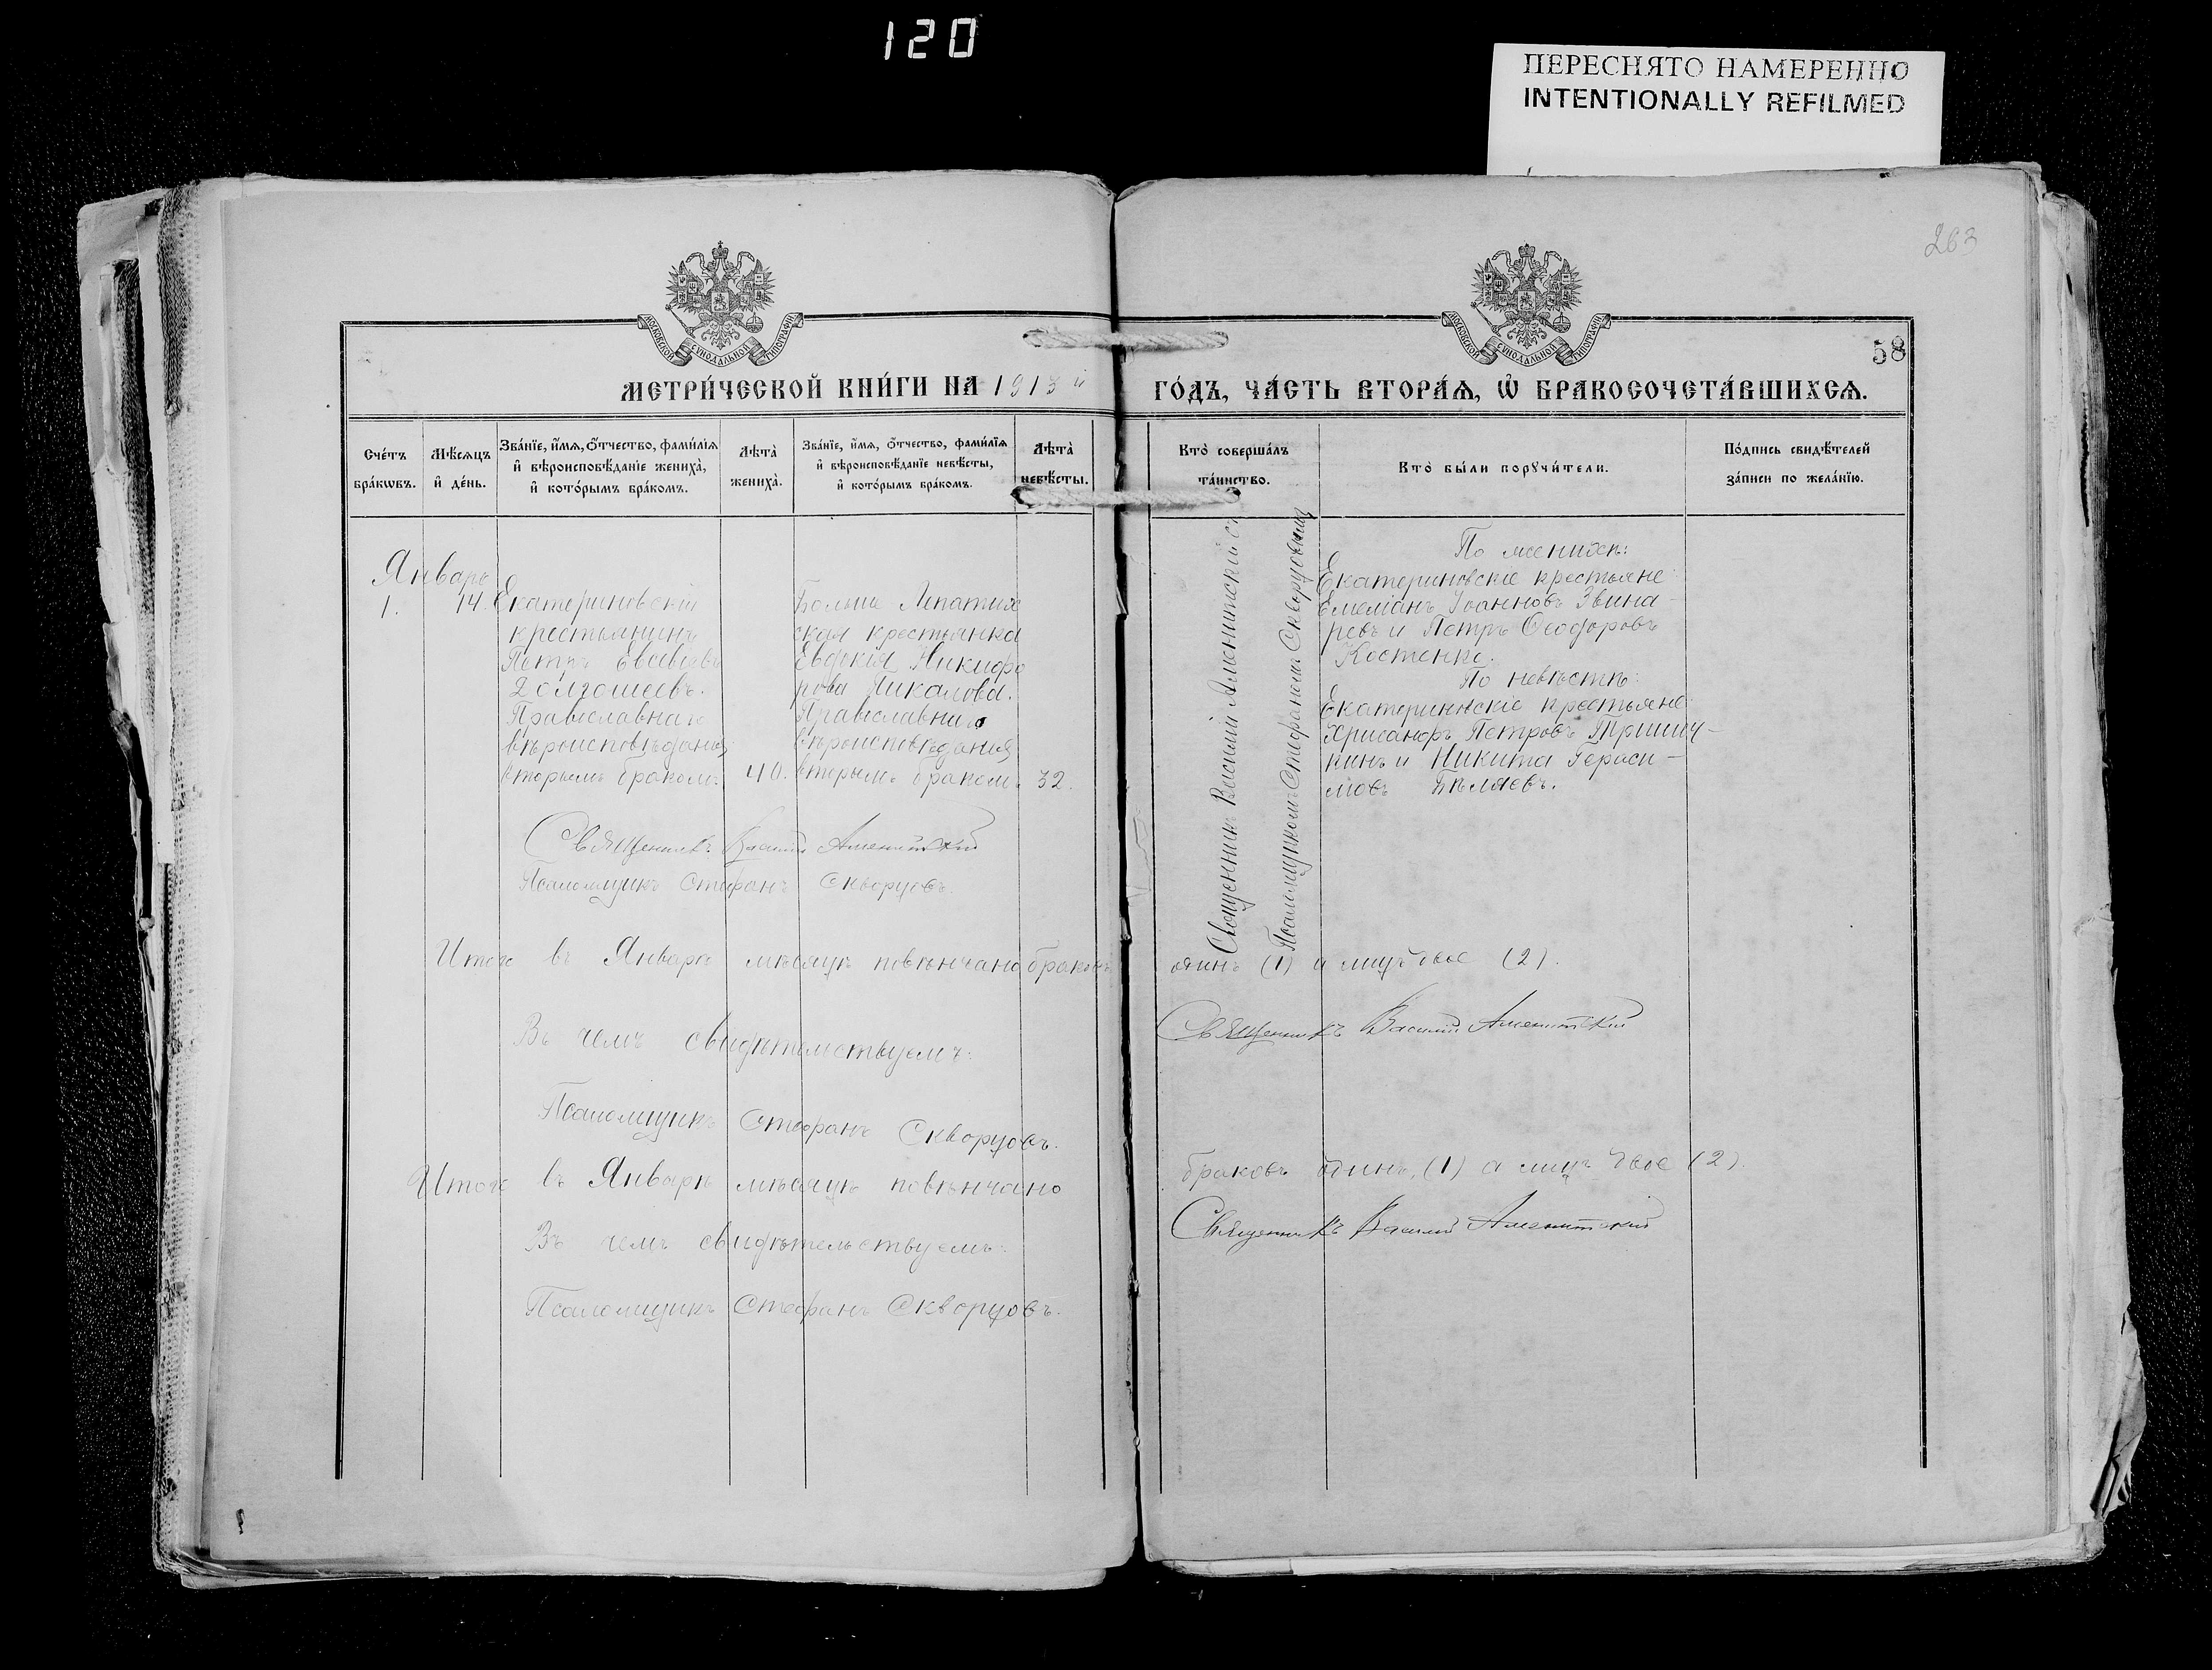 120
ПЕРЕСНЯТО НАМЕРЕННО
INTENTIONALLY REFILMED
263
58
МОСКОВСКОЙ СѴНОДАЛЬНОЙ ТИПОГРАФІИ
МОСКОВСКОЙ СѴНОДАЛЬНОЙ ТИПОГРАФІИ
МЕТРИ́ЧЕСКОЙ КНИ́ГИ НА 1913 й ГО́ДЪ, ЧА́СТЬ ВТОРА́Ѧ, Ѡ҆ БРАКОСОЧЕТА́ВШИХСѦ.
Сче́тъ бра́кѡвъ.
Мѣ́сѧцъ и҆ де́нь.
Зва́нїе, и҆́мѧ, ѻ҆́тчество, фами́лїѧ и҆ вѣроисповѣ́данїе жениха̀, и҆ кото́рымъ бра́комъ.
Лѣта̀ жениха̀.
Зва́нїе, и҆́мѧ, ѻ҆́тчество, фами́лїѧ и҆ вѣроисповѣ́данїе невѣ́сты, и҆ кото́рымъ бра́комъ.
Лѣта̀ невѣ́сты.
Кто̀ соверша́лъ та́инство.
Кто̀ бы́ли порꙋчи́тели.
По́дпись свидѣ́телей за́писи по жела́нїю.
Январь
1.
14.
Екатериновскій
крестьянинъ
Петръ Евсѣевъ
Долгошеевъ.
Православнаго
вѣроисповѣданія,
вторымъ бракомъ.
40.
Больше Лепатих
ская крестьянка
Евдокія Никифо
рова
Православнаго
вѣроисповѣданія,
вторымъ бракомъ.
32.
Священникъ Василій Аменитскій съ
Псаломщикомъ Стефаномъ Скворцовымъ
По женихѣ:
Екатериновскіе крестьяне
Емеліанъ Іоанновъ Звина-
ревъ и Петръ Ѳеодоровъ
Костенко.
По невѣстѣ:
крестьяне
Хрисанфъ Петровъ Тришич-
кинъ и Никита Гераси-
мовъ Бѣляевъ.
Священникъ Василій Аменитскій
Псаломщикъ Стефанъ Скворцовъ.
Итого въ Январѣ мѣсяцѣ повѣнчано браковъ одинъ (1) и лицъ двое (2).
Въ чемъ свидѣтельствуемъ:
Священникъ Василій Аменитскій
Псаломщикъ Стефанъ Скворцовъ.
Итого въ Январѣ мѣсяцѣ повѣнчано браковъ одинъ, (1) а лицъ двое (2).
Въ чемъ свидѣтельствуемъ:
Священникъ Василій Аменитскій
Псаломщикъ Стефанъ Скворцовъ.